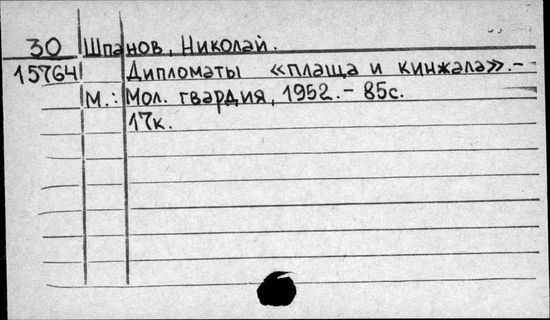 30 Шпанов, Николай.
15764 Дипломаты «плаща и кинжала».-
М.: Мол. гвардия, 1952.- 85с.
17к.